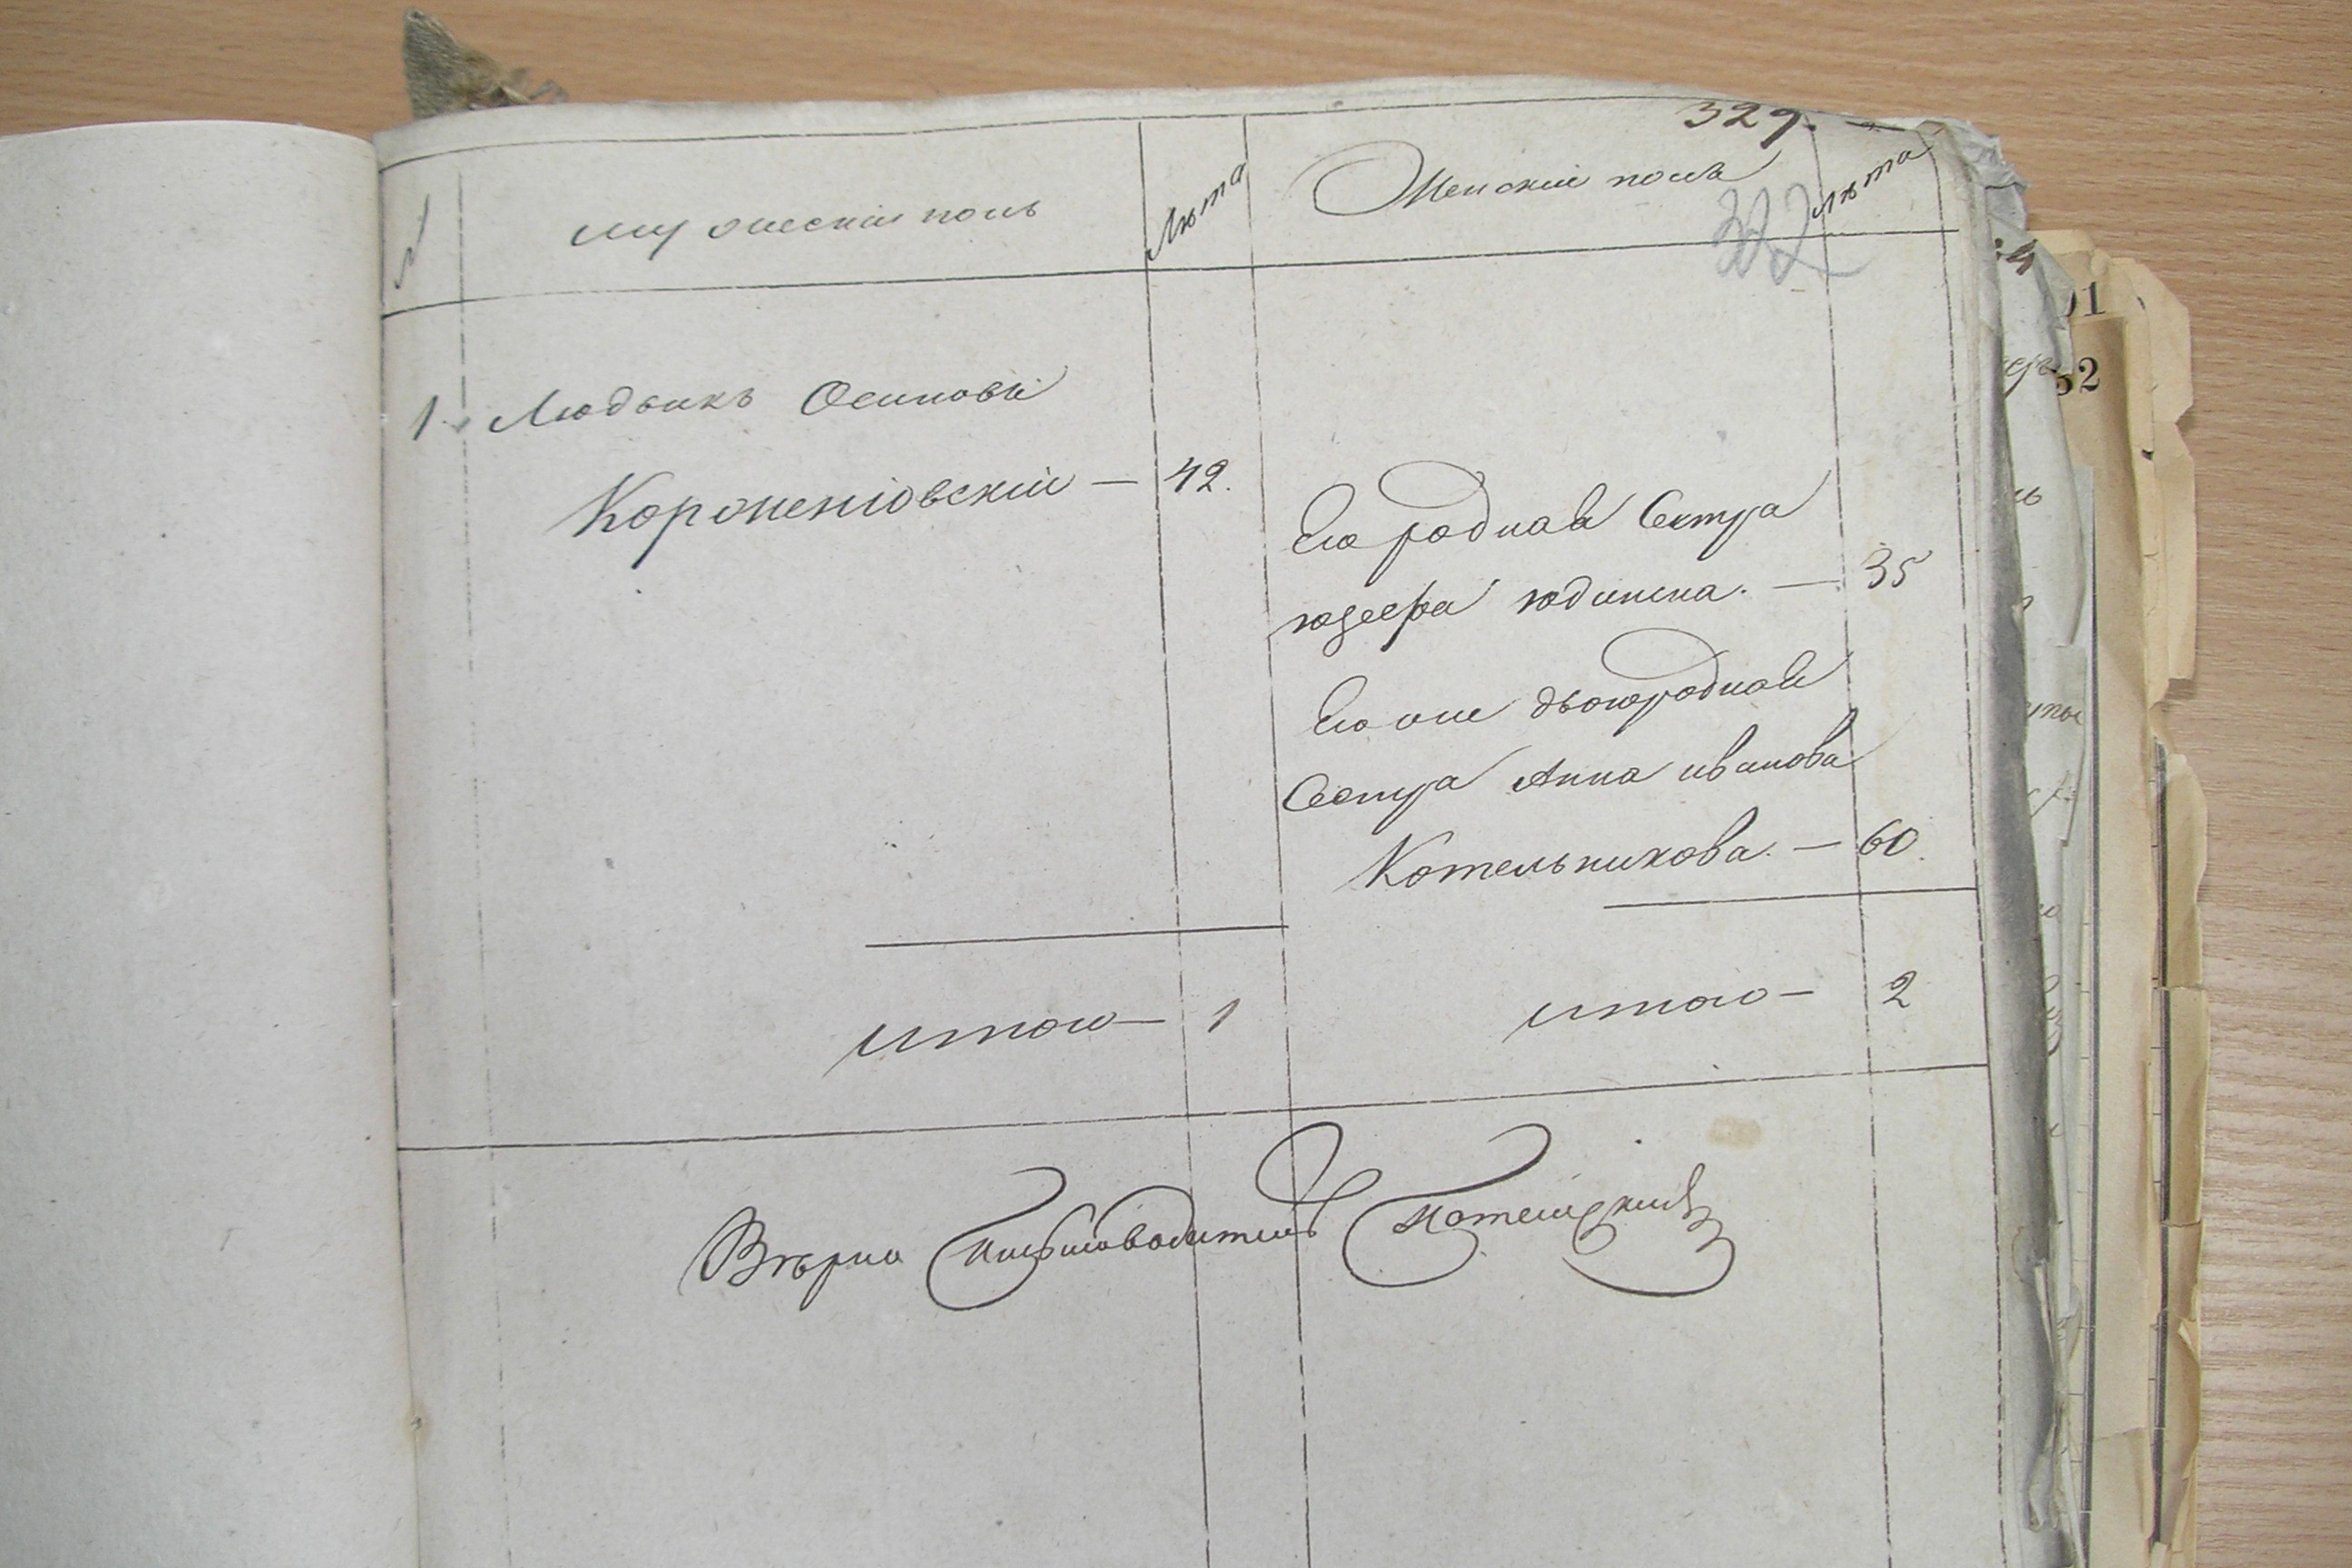 329.
322
№ мужескій полъ Лѣта Женскій полъ Лѣта
1. Людвикъ Осиповъ
Короженіовскій — 42.
Его родная Сестра
юзефа юдицка. — 35
Его же двоюродная
Сестра Анна иванова
Котельникова. — 60.
итого — 1 итого — 2
Вѣрно Письмоводитель